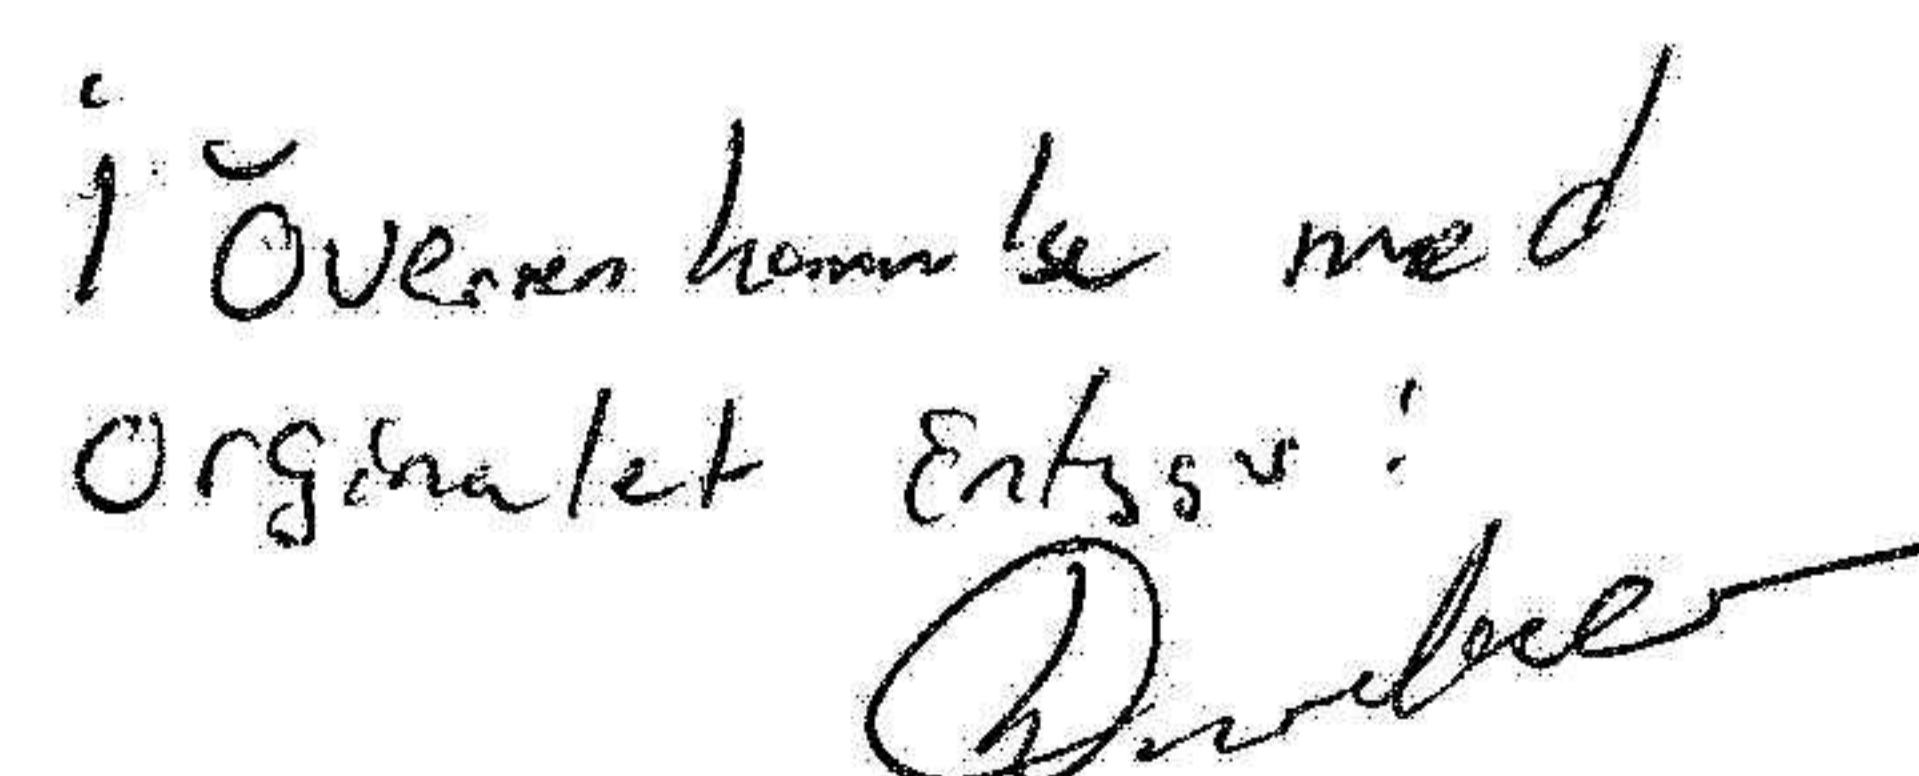 i Överrenkommelse med
Orginalet Entygar: